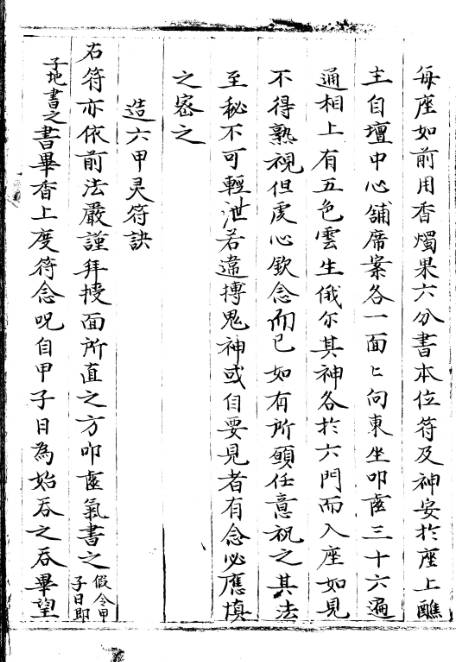 每座如前用香燭果六分書本位符及神安於座上醮
主自壇中心舖席案各一面〻向東坐叩齒三十六遍
通相上有五色雲生俄尔其神各於六門而入座如見
不得熟視但虔心欽念而已如有所願任意祝之其法
至秘不可輕泄若違摶鬼神或自要見者有念必應慎
之密之
造六甲灵符訣
右符亦依前法嚴謹拜 面所直之方叩齒氣書之假令甲子日即
子地書之書畢香上度符念呪自甲子日為始吞之吞畢望